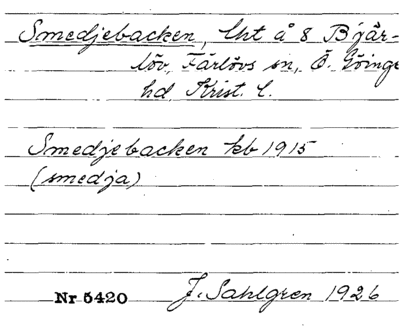 Smedjebacken, lht å 8 Bjär-
löv, Färlövs sn, Ö. Göinge
hd Krist. l.
Smedjebacken kb 1915
(smedja)
Nr 5420 J. Sahlgren 1926